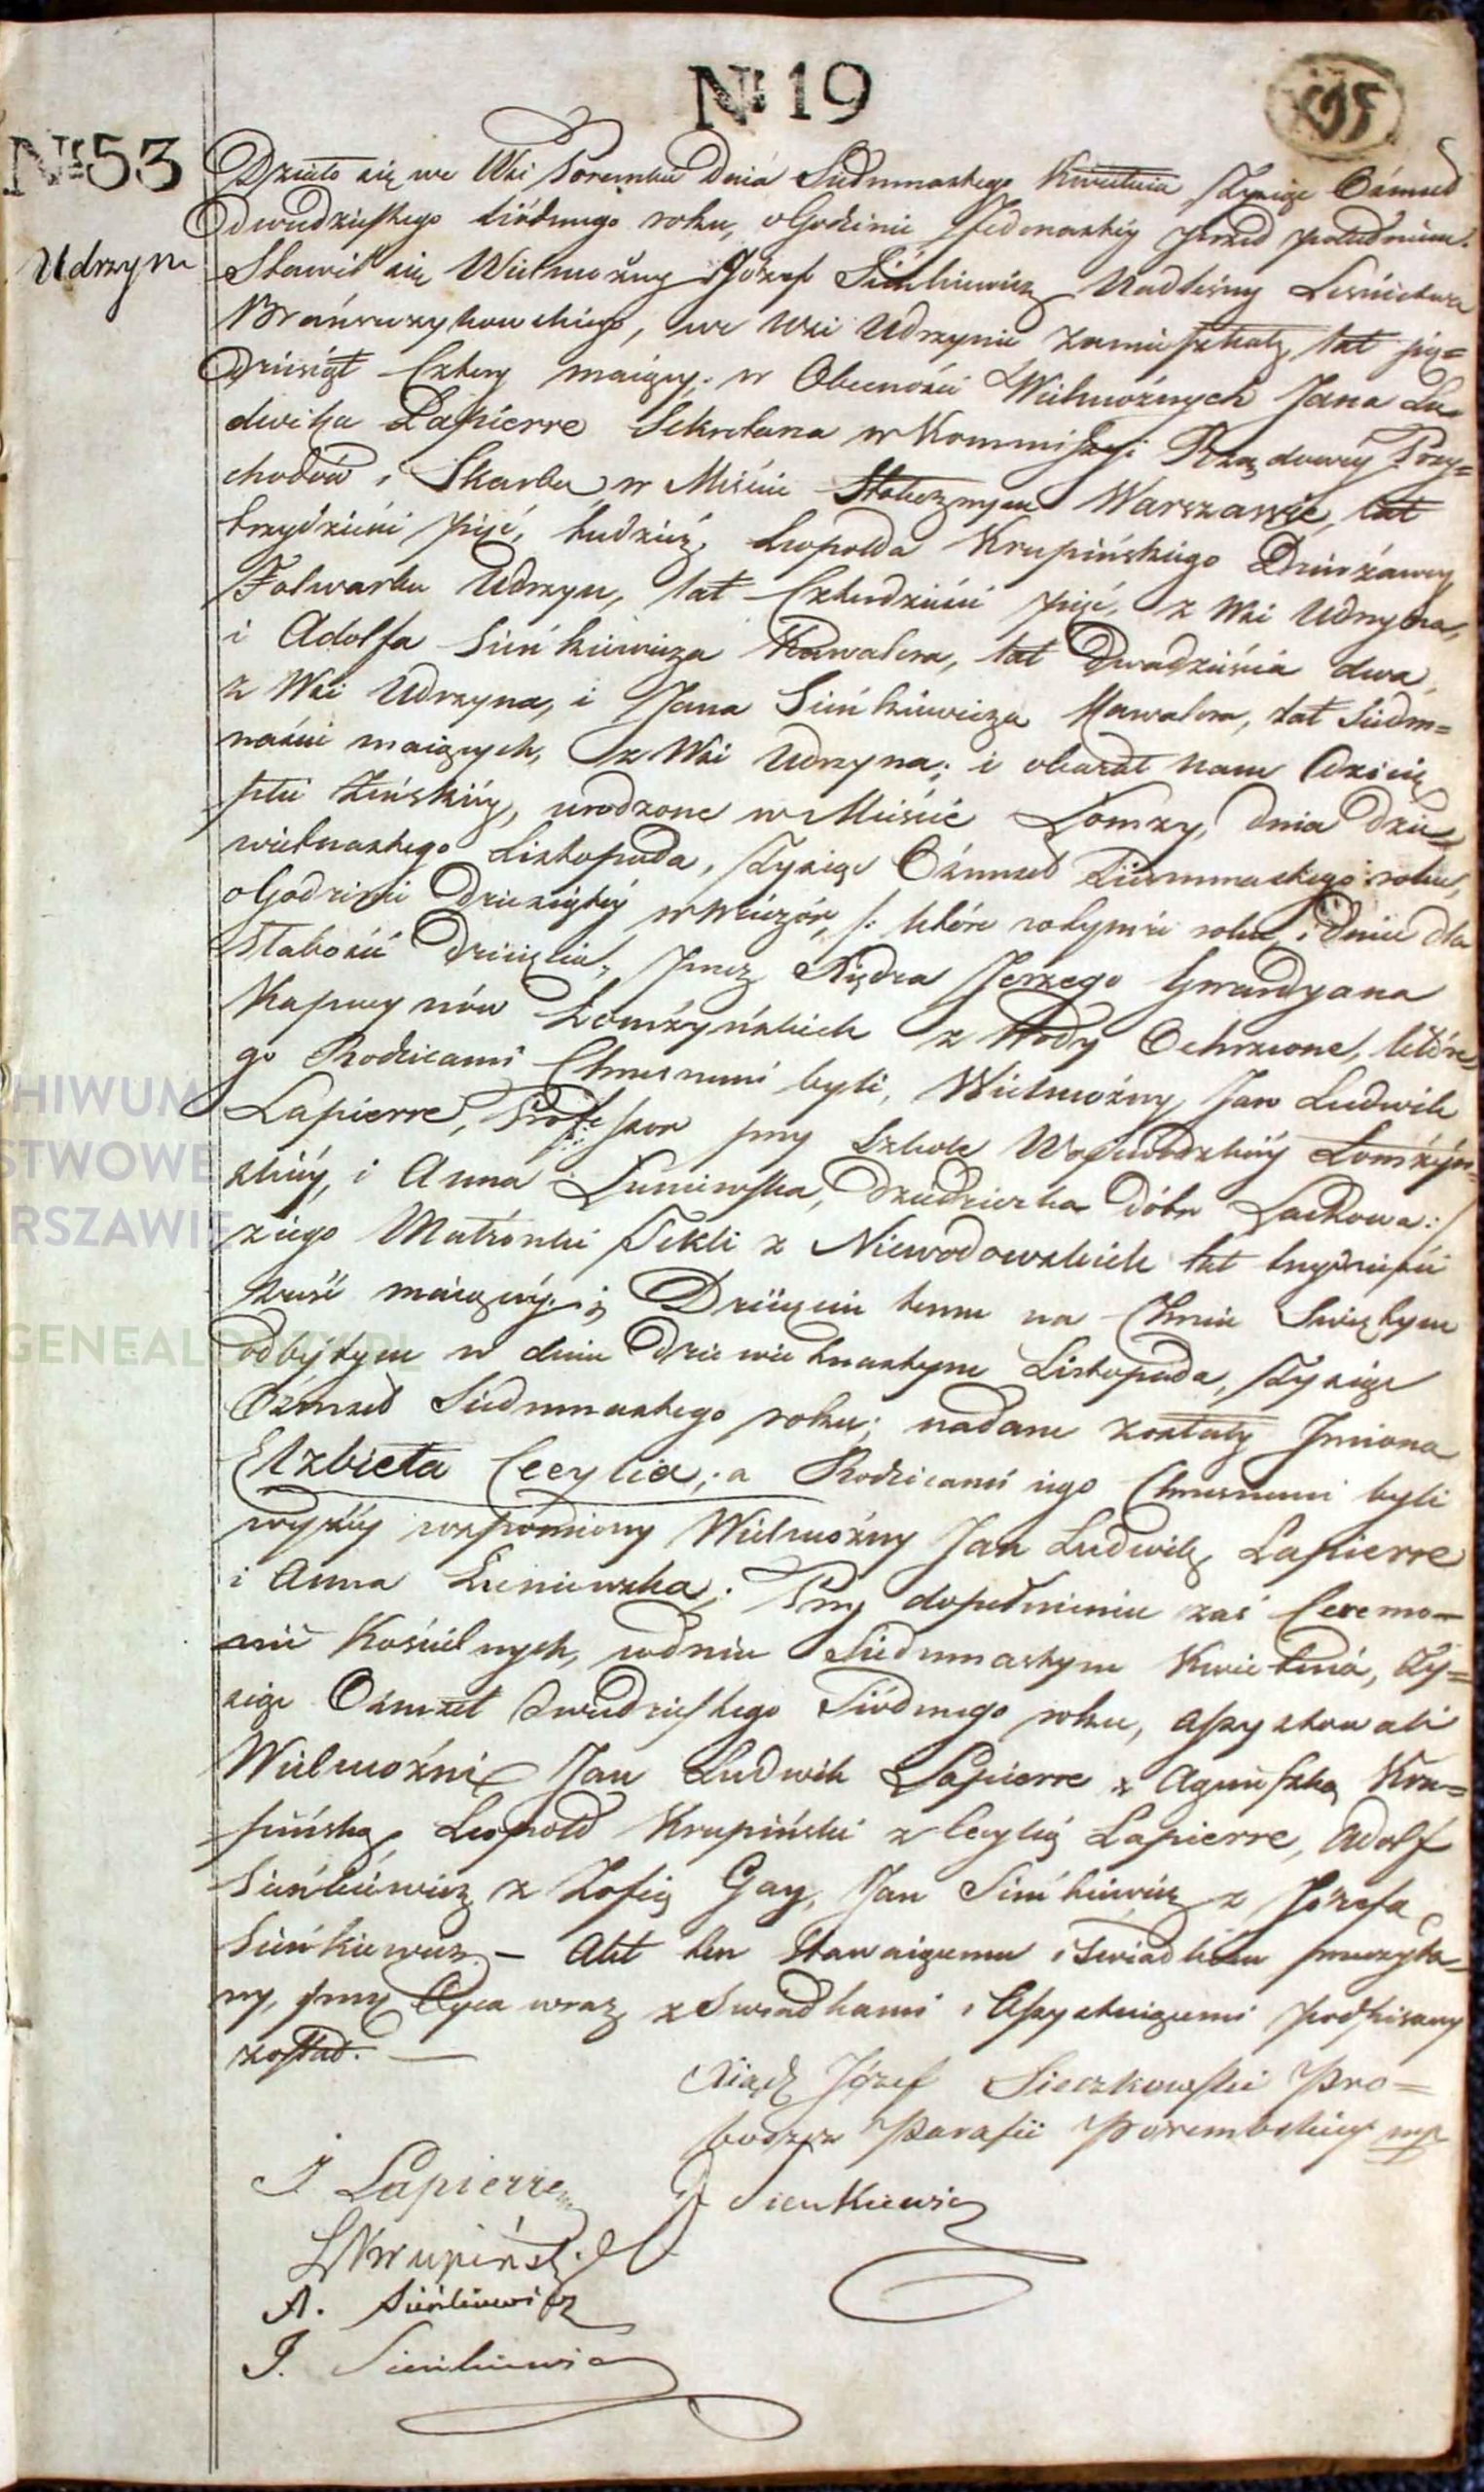 № 19
195
№ 53
Udrzyn
Działo się we Wsi Porembie Dnia Siedmnastego Kwietnia Tysiąc Ośmset
dwudziestego siódmego roku, o Godzinie Jedenastéy przed południem.
Stawił się Wielmożny Józef Sieńkiewicz Nadleśny Leśnictwa
Brańszczykowskiego, we Wsi Udrzynie zamieszkały, lat pię=
dziesiąt Cztery maiący; w Obecności Wielmożnych Jana Lu=
dwika Lapierre Sekretarza w Kommissyi Rządowéy Przy=
chodów i Skarbu w Mieście Stołecznym Warszawie, lat
trzydzieści pięć, tudzież Leopolda Krupińskiego Dzierżawcy
Folwarku Udrzyn, lat Czterdzieści pięć, z Wsi Udrzyna,
i Adolfa Sieńkiewicza Kawalera, lat Dwadzieścia dwa,
z Wsi Udrzyna, i Jana Sieńkiewicza Kawalera, lat Siedm=
naście maiących, z Wsi Udrzyna; i okazał nam Dziecię
płci żeńskiéy, urodzone w Mieście Łomży, dnia dzie=
więtnastego Listopada, Tysiąc Ośmset Siedmnastego roku,
o Godzinie Dziesiątéy w Wieczór, /: które w tymże roku i dniu dla
słabości Dziecięcia, przez Xiędza Jerzego Gwardyana
Kapucynów Łomżyńskich z Wody Ochrzcone, które=
go Rodzicami Chrzesnemi byli, Wielmożny Jan Ludwik
Lapierre, Professor przy Szkole Woiewódzkiéy Łomżyń=
skiéy, i Anna Łuniewska, Dziedziczka dóbr Laskowa :/
z iego Małżonki Tekli z Niewodowskich lat trzydzieści
sześć maiącéy; Dziecięciu temu na Chrzcie Świętym
odbytym w dniu Dziewiętnastym Listopada, Tysiąc
Ośmset Siedmnastego roku; nadane zostały Jmiona
Elżbieta Cecylia; a Rodzicami iego Chrzesnemi byli
wyżéy wspomniony Wielmożny Jan Ludwik Lapierre
i Anna Łuniewska; Przy dopełnieniu zaś Ceremo=
nii Kościelnych, w dniu Siedmnastym Kwietnia, Ty=
siąc Ośmset Dwudziestego Siódmego roku, assystowali
Wielmożni Jan Ludwik Lapierre z Agnieszką Kru=
pińską, Leopold Krupiński z Cecylią Lapierre, Adolf
Sieńkiewicz z Zofią Gay, Jan Sieńkiewicz z Józefą
Sieńkiewicz. — Akt ten stawaiącemu i Świadkom przeczyta=
ny, przez Oyca wraz z Świadkami i Assystuiącemi podpisany
został. —
Xiądz Józef Sieczkowski Pro=
boszcz Parafii Porembskiéy mp
J. Lapierre
J Sienkiewicz
L Krupiński
A. Sieńkiewicz
J. Sieńkiewicz
HIWUM
STWOWE
RSZAWIE
GENEALODZY.PL